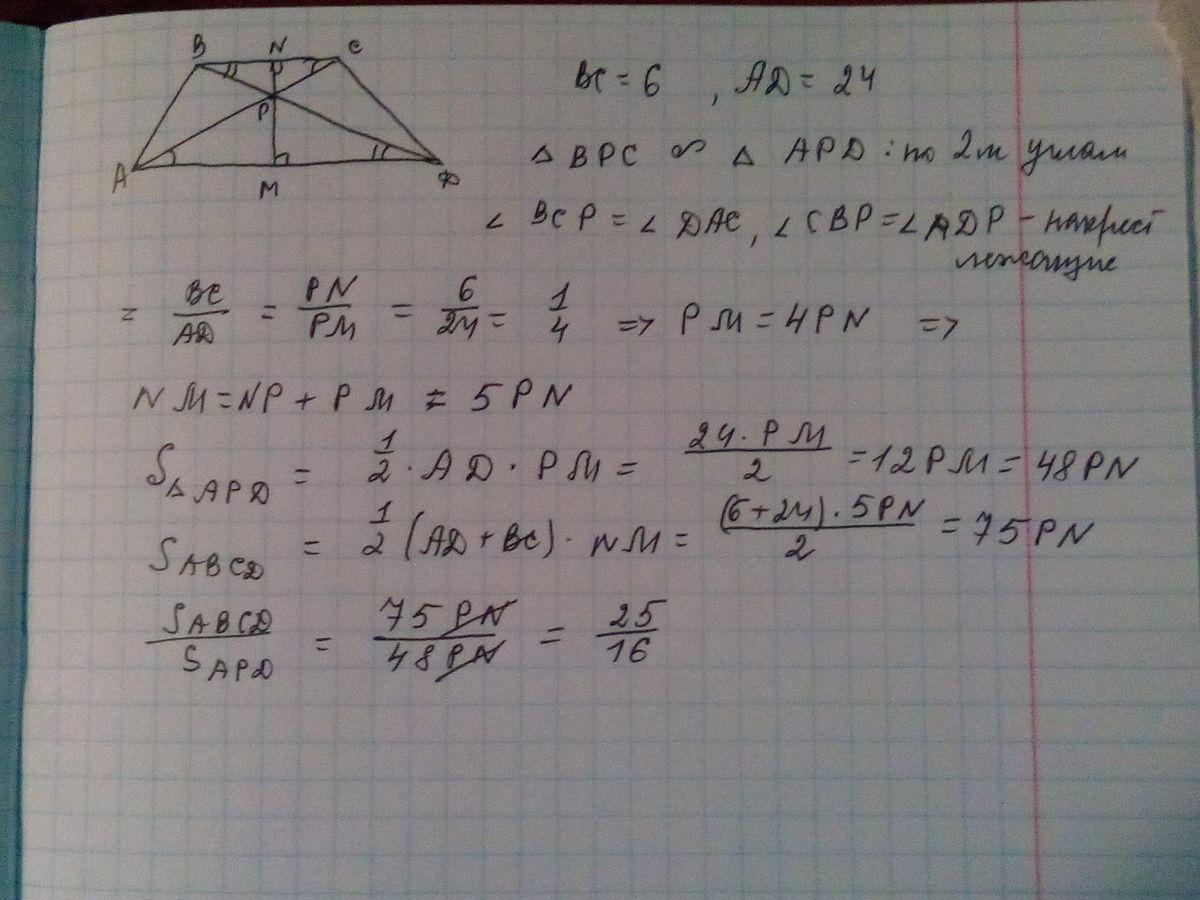 B N C
P
A M D
BC = 6 , AD = 24
△ BPC ∞ △ APD : по 2м углам
∠ BCP = ∠ DAC, ∠ CBP = ∠ ADP - накрест
лежащие
= BC/AD = PN/PM = 6/24 = 1/4 => PM = 4PN =>
NM = NP + PM = 5PN
S△APD = 1/2 · AD · PM = 24 · PM/2 = 12PM = 48PN
SABCD = 1/2 (AD + BC) · NM = (6+24) · 5PN/2 = 75PN
SABCD/SAPD = 75PN/48PN = 25/16